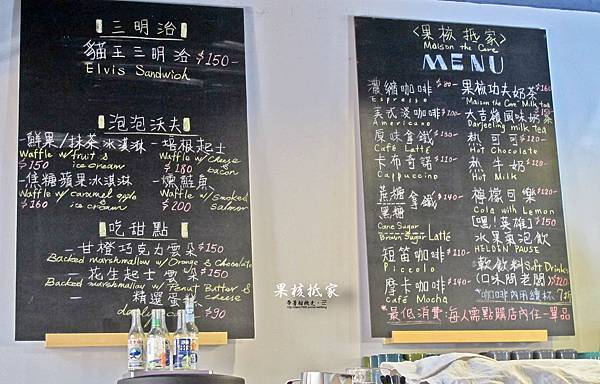 三明治
貓王三明治 $150-
Elvis Sandwich
泡泡沃夫
-鮮果/抹茶冰淇淋
Waffle w/ fruit &
$150 ice cream
-培根起士
Waffle w/ cheese &
$180 bacon
-焦糖蘋果冰淇淋
Waffle w/ caramel apple
$160 ice cream
-燻鮭魚
Waffle w/ smoked
$200 salmon
吃甜點
-甘橙巧克力雲朵 $150
Backed marshmallow w/ Orange & Chocolate
-花生起士雲朵 $150
Backed marshmallow w/ Peanut Butter & cheese
-精選蛋糕
$90
<果核抵家>
Maison the Core
MENU
濃縮咖啡 $80-
Espresso
美式淡咖啡 $100-
Americano
原味拿鐵 $130-
Café Latté
卡布奇諾 $110-
Cappuccino
蔗糖
黑糖 拿鐵 $140-
Cane Sugar
Brown Sugar Latté
短笛咖啡 $110-
Piccolo
摩卡咖啡 $140-
Café Mocha
果核功夫奶茶 $160
"Maison the Core" Milk tea
大吉嶺風味奶茶
Darjeeling milk tea
熱可可 $120-
Hot Chocolate
熱牛奶 $120-
Hot Milk
檸檬可樂 $120-
Cola with Lemon
[嘿!英雄] $150-
水果氣泡飲
HELDEN PAUSE
軟飲料 Soft Drinks
(口味問老闆)
*咖啡內用續杯
*最低消費:每人需點購店內任一單品
果核抵家